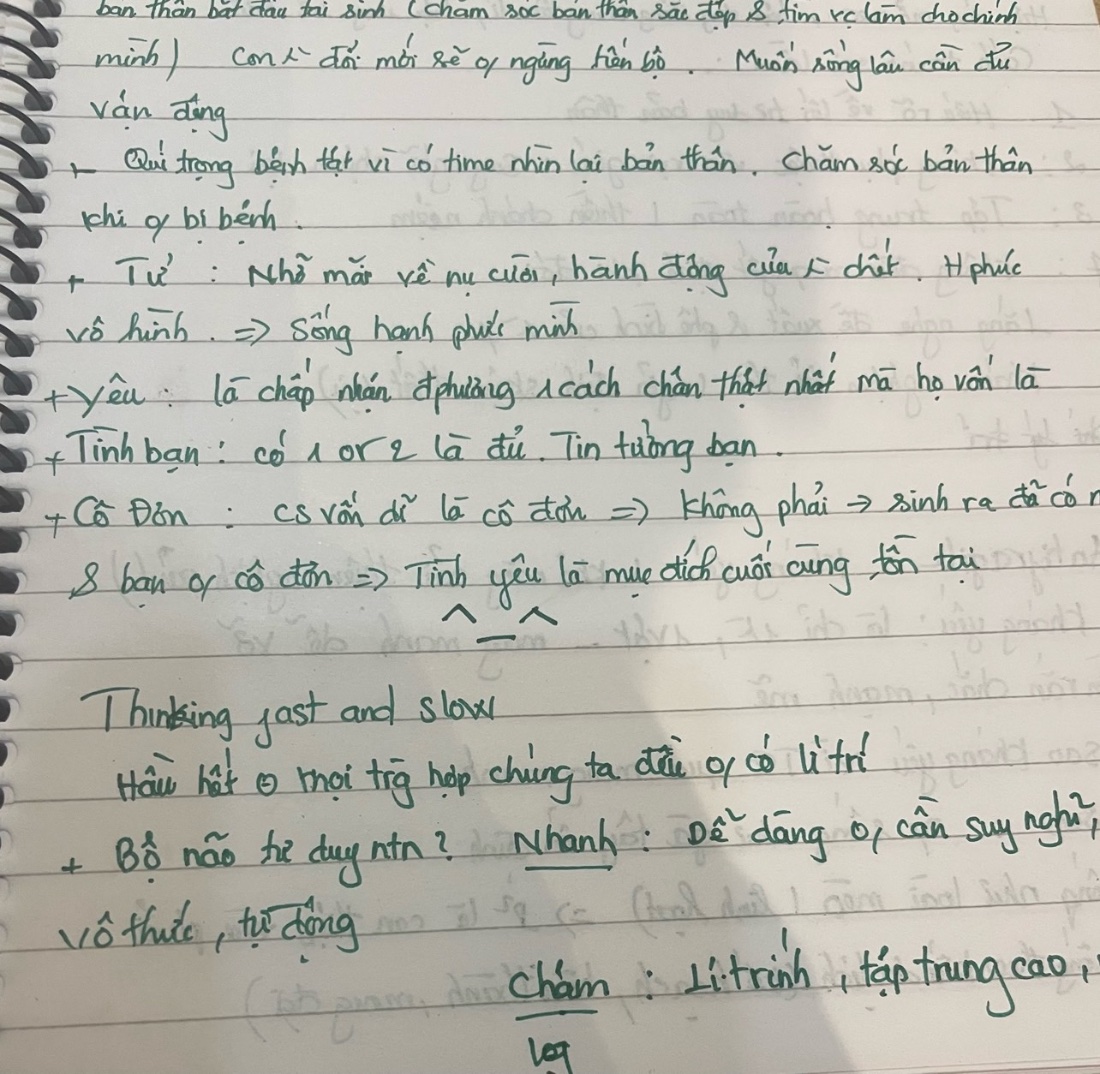 bản thân bắt đầu tái sinh (chăm sóc bản thân sắc đẹp & tìm vc làm cho chính
mình) Con đổi mới sẽ o/ ngừng tiến bộ. Muốn sống lâu cần đủ
vận động
+ Quí trọng bệnh tật vì có time nhìn lại bản thân. Chăm sóc bản thân
khi o/ bị bệnh.
+ Tử : Nhớ mãi về nụ cười, hành động của chết. H phúc
vô hình. => Sống hạnh phúc mình
+ Yêu : là chấp nhận đphương 1 cách chân thật nhất mà họ vốn là
+ Tình bạn : có 1 or 2 là đủ. Tin tưởng bạn.
+ Cô Đơn : CS vốn dĩ là cô đơn => Không phải → sinh ra đã có
& bạn o/ cô đơn => Tình yêu là mục đích cuối cùng tồn tại
^_^
Thinking fast and slow
Hầu hết mọi trg hợp chúng ta đều o/ có lí trí
+ Bộ não tư duy ntn? Nhanh : Dễ dàng o/ cần suy nghĩ,
vô thức, tự động
Chậm : Lí trính, tập trung cao,